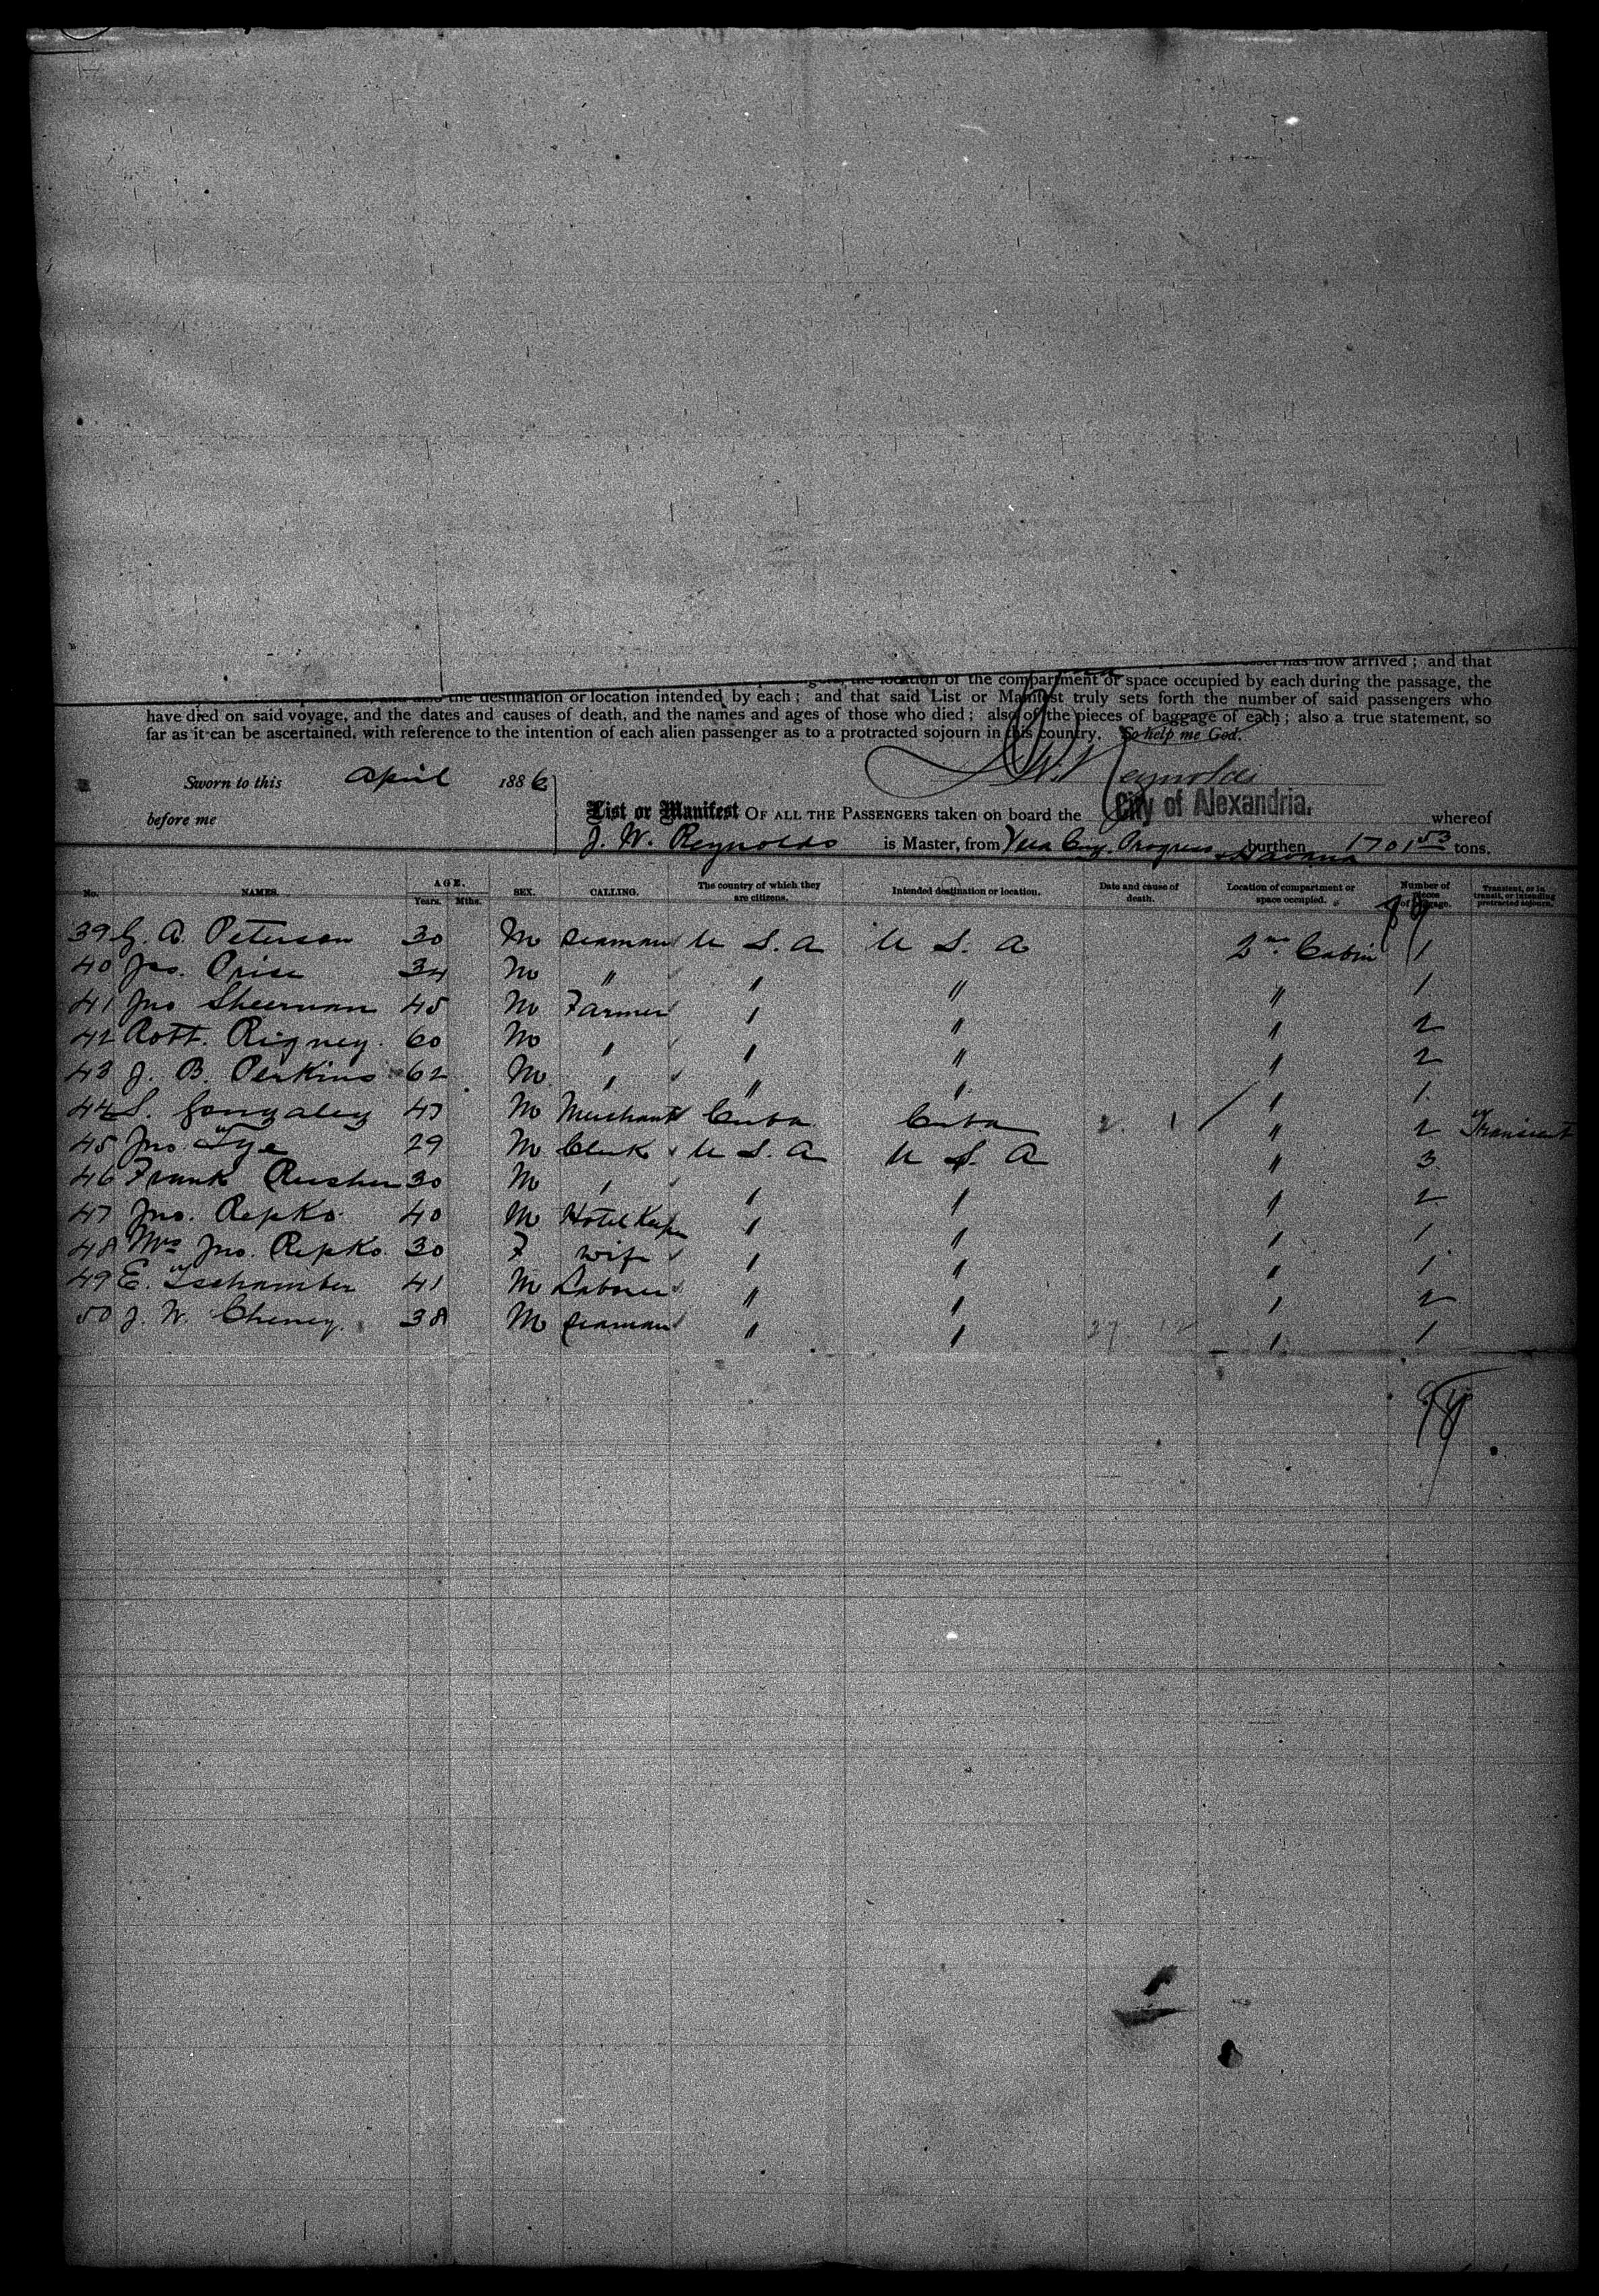 has now arrived; and that
the location of the compartment or space occupied by each during the passage, the
the destination or location intended by each; and that said List or Manifest truly sets forth the number of said passengers who
have died on said voyage, and the dates and causes of death, and the names and ages of those who died; also of the pieces of baggage of each; also a true statement, so
far as it can be ascertained, with reference to the intention of each alien passenger as to a protracted sojourn in this country. So help me God.
Sworn to this April 1886 J. W. Reynolds
before me List or Manifest OF ALL THE PASSENGERS taken on board the City of Alexandria. whereof
J. W. Reynolds is Master, from Vera Cruz, Progreso Havana burthen 1701 53 tons.
No. NAMES. AGE. Years. Mths. SEX. CALLING. The country of which they are citizens. Intended destination or location. Date and cause of death. Location of compartment or space occupied. Number of pieces of baggage. Transient, or in transit, or intending protracted sojourn.
39 G. A. Peterson 30 M Seaman U S. A U S. A 2nd Cabin 1
40 34 M " " " 1
41 Jno Sheerman 45 M Farmer " " " 2
42 Robt. Rigney 60 M " " " " 2
43 J. B. Perkins 62 M " " " " 1
44 S. Gonzalez 47 M Merchant Cuba Cuba " 2 Transient
45 Jno. Tye 29 M Clerk U S. A U S. A " 3
46 Frank 30 M " " " " 2
47 Jno. Repko 40 M Hotel Keeper " " " 1
48 Mrs Jno. Repko 30 F wife " " " 1
49 E. Tschamber 41 M Laborer " " " 2
50 J. W. Cheney 38 M Seaman " " 27 12 " 1